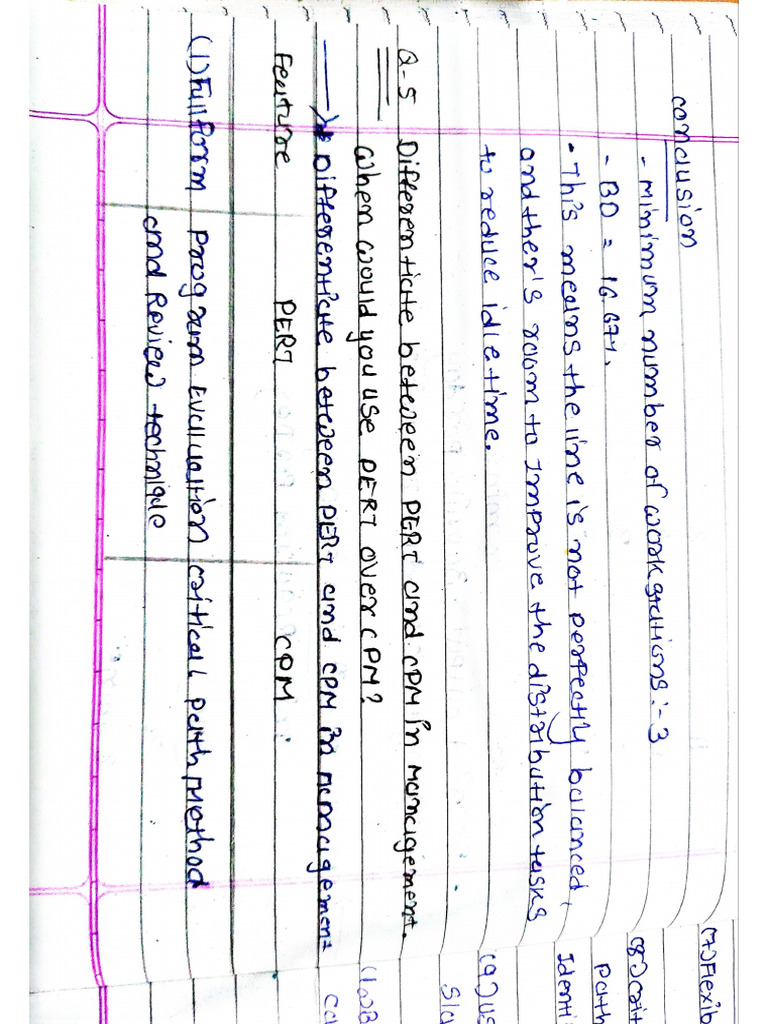 conclusion
- Minimum number of workstations :- 3
- BD = 16.67%.
• This means the line is not perfectly balanced,
and ther's room to Improve the distribution tasks
to reduce idle time.
Q-5 Differentiate between PERT and CPM in Management.
When would you use PERT over CPM?
Differentiate between PERT and CPM in management
Feature PERT CPM
(1) Full form Program Evaluation critical path Method
and Review technique
(7) Flexib
(8) crit
path
Identi
(9) us
Sla
(10) B